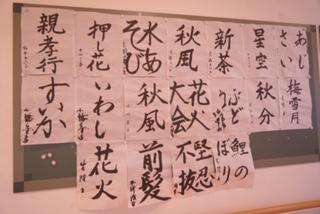 あじさい
星空
新茶
秋風
水あそび
押し花
親孝行
梅雪月
秋分
花火大会
秋風
いわし
すいか
鯉のぼり
堅忍不抜
前髪
花火